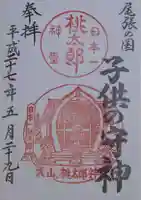 尾張の国
子供の守神
日本一
桃太郎
神霊
奉拝
平成二十七年五月二十九日
犬山
桃太郎